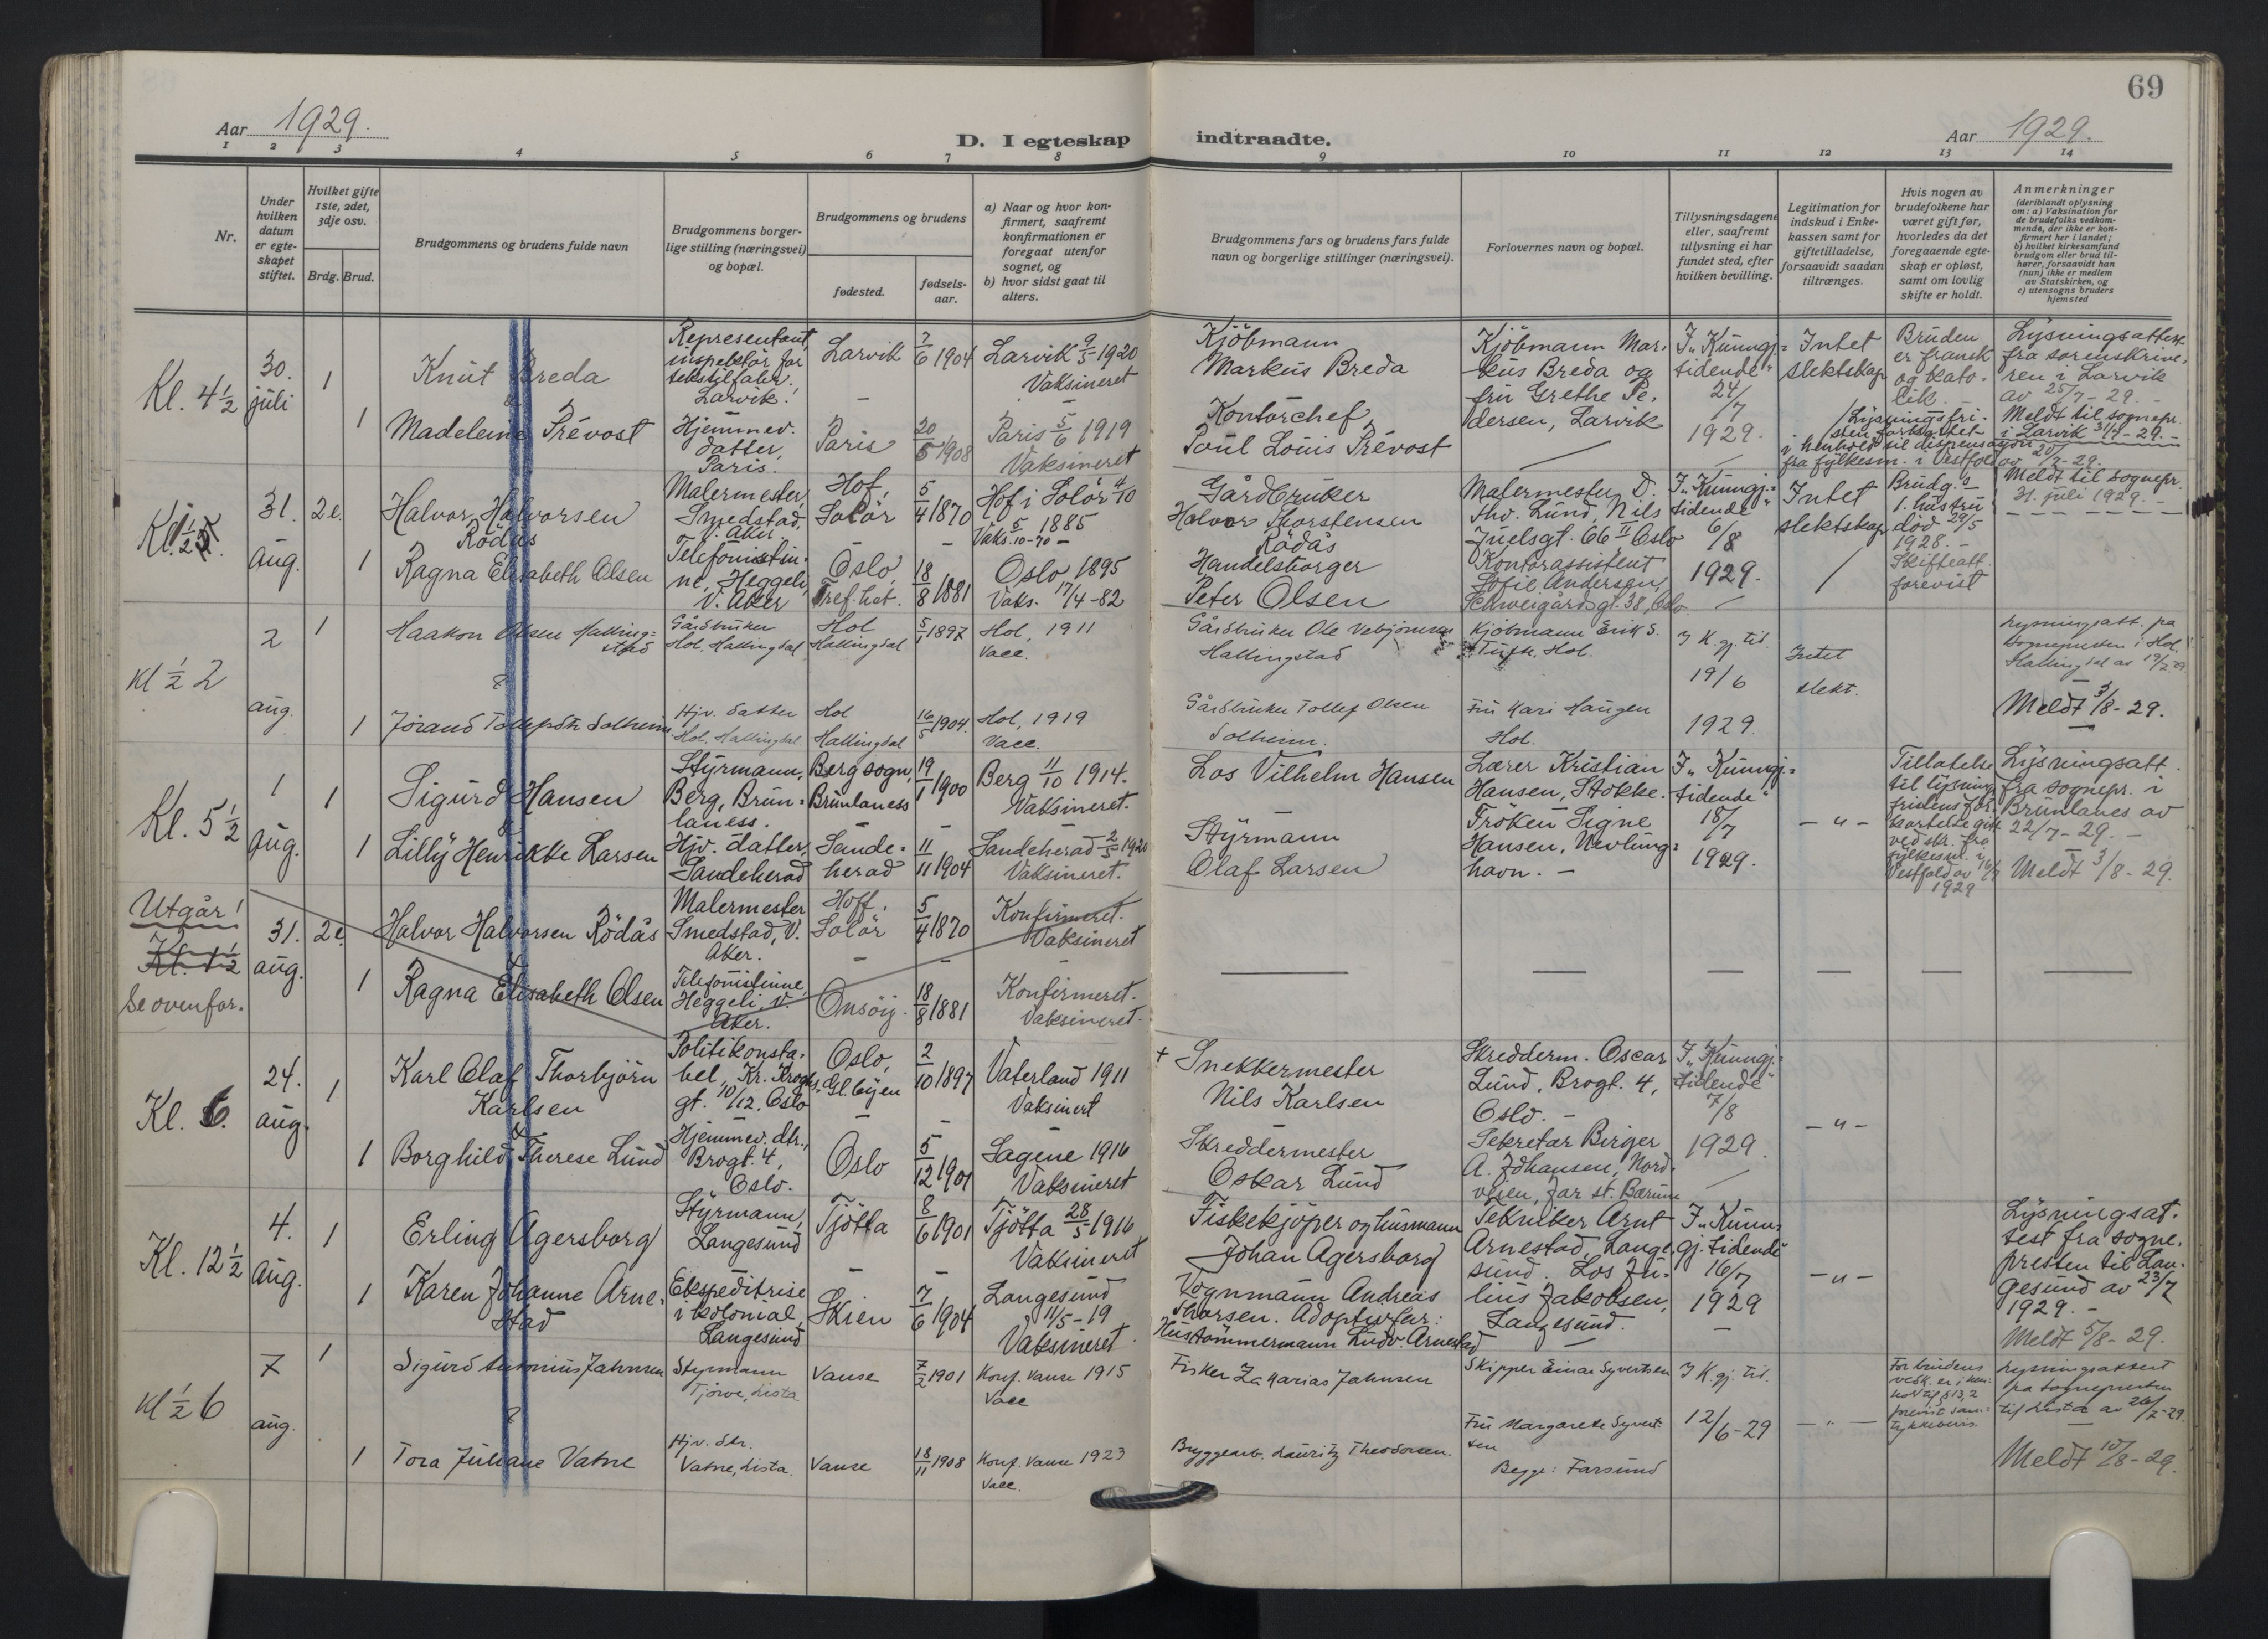 69
Aar 1929.
D. I egteskap indtraadte.
Aar 1929.
1 2 3 4 5 6 7 8 9 10 11 12 13 14
Nr.
Under
hvilken
datum
er egte-
skapet
stiftet.
Hvilket gifte
1ste, 2det,
3dje osv.
Brdg. Brud.
Brudgommens og brudens fulde navn
Brudgommens borger-
lige stilling (næringsvei)
og bopæl.
Brudgommens og brudens
fødested.
fødsels-
aar.
a) Naar og hvor kon-
firmert, saafremt
konfirmationen er
foregaat utenfor
sognet, og
b) hvor sidst gaat til
alters.
Brudgommens fars og brudens fars fulde
navn og borgerlige stillinger (næringsvei).
Forlovernes navn og bopæl.
Tillysningsdagene
eller, saafremt
tillysning ei har
fundet sted, efter
hvilken bevilling.
Legitimation for
indskud i Enke-
kassen samt for
giftetilladelse,
forsaavidt saadan
tiltrænges.
Hvis nogen av
brudefolkene har
været gift før,
hvorledes da det
foregaaende egte-
skap er opløst,
samt om lovlig
skifte er holdt.
Anmerkninger
(deriblandt oplysning
om: a) Vaksination for
de brudefolks vedkom-
mende, der ikke er kon-
firmert her i landet;
b) hvilket kirkesamfund
brudgom eller brud til-
hører, forsaavidt han
(hun) ikke er medlem
av Statskirken, og
c) utensogns bruders
hjemsted
Kl. 4 1/2
30.
juli
1
Knut Breda
Representant,
inspektør for
tekstilfabr.
Larvik.
Larvik
7/6 1904
Larvik 9/5 1920
Vaksineret
Kjöbmann
Markus Breda
Kjöbmann Mar-
kus Breda og
fru Grethe Pe-
dersen, Larvik
I „Kunngj-
tidende"
24/7
1929.
Intet
slektskap
Bruden
er fransk
og kato-
lik.
Lysningsattest
fra sorenskrive-
ren i Larvik
av 25/7 - 29.
1
Madeleine Prévost
Hjemmev.
datter,
Paris.
Paris
20/5 1908
Paris 5/6 1919
Vaksineret
Kontorchef
Poul Louis Prévost
Lysningsfri-
sten forkortet
i henhold til dispensasjon
fra fylkesm. i Vestfold av 20/7-29.
Meldt til sognepr.
i Larvik 31/7 - 29.
31.
aug.
2e.
Halvor Halvorsen
Rödås
Malermester,
Smedstad,
V. Aker.
Hof,
Solør
5/4 1870
Hof i Solör 4/10
1885
Gårdbruker
Halvor Thorstensen
Rödås
Malermester O.
Thv. Lund, Nils
Juelsgt. 66 II Oslo
I „Kunngj-
tidende"
6/8
1929.
Intet
slektskap
Brudg.s
1. hustru
död 29/5
1928.
Skifteatt.
forevist
Meldt til sognepr.
31. juli 1929.
1
Ragna Elisabeth Olsen
Telefonistin-
ne, Heggeli,
V. Aker
Oslo,
Tref. het.
18/8 1881
Oslo 1895
Vaks. 17/4-82
Handelsborger
Peter Olsen
Kontorassistent
Sofie Andersen,
Schweigårdsgt. 38, Oslo
Kl 1/2 2
2
aug.
1
Haakon Olsen Halling-
stad
Gårdbruker
Hol, Hallingdal
Hol
Hallingdal
5/1 1897
Hol, 1911
Vacc.
Gårdbruker Ole Vebjörnsen
Hallingstad
Kjöbmann Erik S.
Tufte, Hol.
I K. gj. tid.
19/6
1929
Intet
slekt.
Lysningsatt. fra
sognepresten i Hol,
Hallingdal av 19/7 29
Meldt 3/8 - 29.
1
Jörand Tollefsdtr Solheim
Hjv. datter
Hol, Hallingdal
Hol
Hallingdal
16/5 1904
Hol, 1919
Vacc.
Gårdbruker Tollef Olsen
Solheim.
Fru Kari Haugen
Hol.
Kl. 5 1/2
1
aug.
1
Sigurd Hansen
Styrmann,
Berg, Brun-
laness.
Berg sogn,
Brunlaness
19/1 1900
Berg 11/10 1914.
Vaksineret.
Los Vilhelm Hansen
Lærer Kristian
Hansen, Stokke.
Fröken Signe
Hansen, Nevlung-
havn.
I „Kunngj-
tidende"
18/7
1929.
- „ -
Tillatelse
til lysnings-
fristens for-
kortelse gitt
ved skr. fra
fylkesm. i
Vestfold av 16/7
1929
Lysningsatt.
fra sognepr. i
Brunlanes av
22/7 - 29.
Meldt 3/8 - 29.
1
Lilly Henrikke Larsen
Hjv. datter,
Sandeherad
Sande-
herad
11/11 1904
Sandeherad 2/5 1920
Vaksineret.
Styrmann
Olaf Larsen
Utgår!
Kl. 1 1/2
Se ovenfor.
31.
aug.
2e.
Halvor Halvorsen Rödås
Malermester
Smedstad, V.
Aker.
Hoff,
Solör
5/4 1870
Konfirmeret.
Vaksineret
1
Ragna Elisabeth Olsen
Telefonistinne,
Heggeli, V.
Aker.
Onsöy
18/8 1881
Konfirmeret.
Vaksineret.
Kl. 6.
24.
aug.
1
Karl Olaf Thorbjörn
Karlsen
Politikonsta-
bel, Kr. Kroghs
gt. 10/12, Oslo
Oslo,
2/10 1897
Vaterland 1911
Vaksinert
+ Snekkermester
Nils Karlsen
Skredderm. Oscar
Lund, Brogt. 4,
Oslo.
I „Kunngj-
tidende"
7/8
1929.
- „ -
1
Borghild Therese Lund
Hjemmev. dtr.,
Brogt. 4,
Oslo.
Oslo
5/12 1901
Sagene 1916
Vaksineret
Skreddermester
Oskar Lund
Sekretær Birger
A. Johansen, Nord-
veien, Jar st. Bærum
Kl. 12 1/2
4.
aug.
1
Erling Agersborg
Styrmann,
Langesund
Tjötta
8/6 1901
Tjötta 28/5 1916
Vaksineret
Fiskekjöper og husmann
Johan Agersborg
Tekniker Arnt
Arnestad, Lange-
sund. Los Ju-
lius Jakobsen,
Langesund.
I „Kunn-
gj. tidende"
16/7
1929
- „ -
Lysningsat-
test fra sogne-
presten til Lan-
gesund av 23/7
1929.
Meldt 5/8 - 29.
1
Karen Johanne Arne-
stad
Ekspeditrise
i kolonial,
Langesund
Skien
7/6 1904
Langesund
11/5 - 19
Vaksineret.
Vognmann Andreas
Thorsen. Adoptivfar:
Hustömmermann Ludv. Arnestad
Kl 1/2 6
7
aug.
1
Sigurd Antonius Jahnsen
Styrmann
Tjörve, Lista
Vanse
7/2 1901
Konf. Vanse 1915
Vacc
Fisker Zakarias Jahnsen
Skipper Einar Syvertsen
I K. gj. tid.
12/6 - 29
- „ -
For brudens
vedk. er i hen-
hold til § 13, 2
forevist sam-
tykkebevis.
Lysningsattest
fra sognepresten
til Lista av 26/7 - 29.
Meldt 10/8 - 29.
1
Tora Juliane Vatne
Hjv. dtr.
Vatne, Lista.
Vanse
18/11 1908
Konf. Vanse 1923
Vacc.
Bryggearb. Lauritz Theodorsen.
Fru Margarethe Syvert-
sen
Begge: Farsund